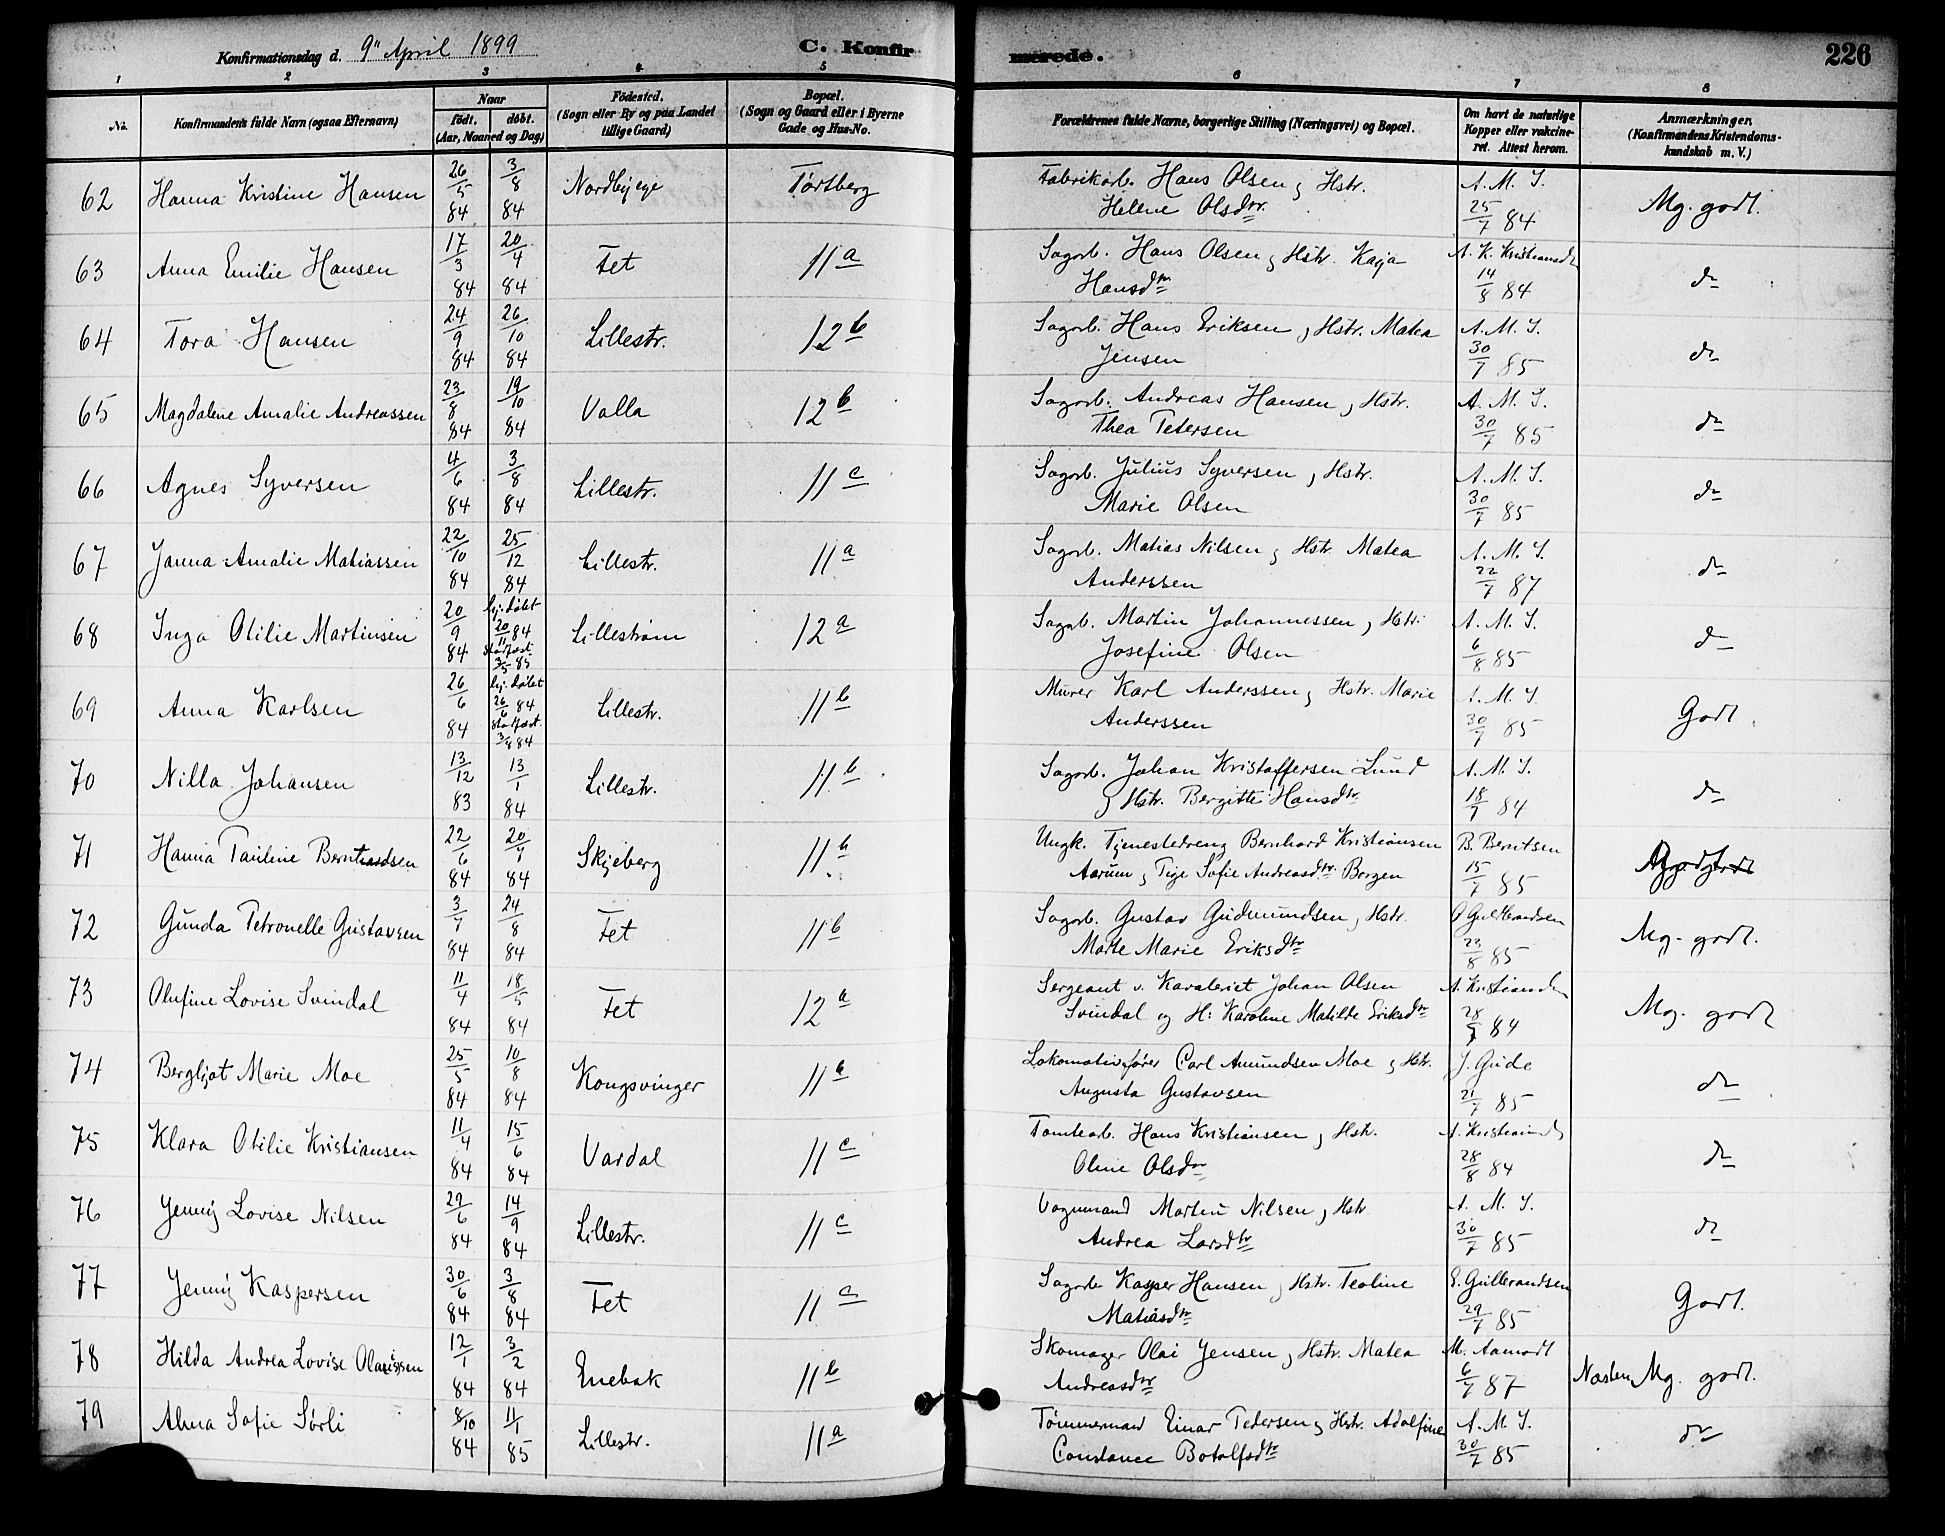 Konfirmationsdag d. 9" April 1899
C. Konfirmerede.
226
1 2 3 4 5 6 7 8
No.
Konfirmandens fulde Navn (ogsaa Efternavn)
Naar
født. døbt.
(Aar, Maaned og Dag)
Fødested.
(Sogn eller By og paa Landet
tillige Gaard)
Bopæl.
(Sogn og Gaard eller i Byerne
Gade og Hus-No.
Forældrenes fulde Navne, borgerlige Stilling (Næringsvei) og Bopæl.
Om havt de naturlige
Kopper eller vakcine-
ret. Attest herom.
Anmærkninger.
(Konfirmandens Kristendoms-
kundskab m. V.)
62 Hanna Kristine Hansen 26/5 84 3/8 84 Nordbyeje Tørtberg Fabrikarb. Hans Olsen og Hstr.
Helene Olsdtr. A. M. S. 25/7 84 Mg. godt.
63 Anna Emilie Hansen 17/3 84 20/4 84 Fet 11a Sagarb. Hans Olsen og Hstr. Kaja
Hansdtr A. K. Kristiansdtr 14/8 84 do
64 Tora Hansen 24/9 84 26/10 84 Lillestr. 12b Sagarb. Hans Eriksen og Hstr. Matea
Jensen A. M. S. 30/7 85 do
65 Magdalene Amalie Andreassen 23/8 84 19/10 84 Valla 12b Sagarb. Andreas Hansen og Hstr.
Thea Petersen A. M. S. 30/7 85 do
66 Agnes Syversen 4/6 84 3/8 84 Lillestr. 11c Sagarb. Julius Syversen og Hstr.
Marie Olsen A. M. S. 30/7 85 do
67 Janna Amalie Matiassen 22/10 84 25/12 84 Lillestr. 11a Sagarb. Matias Nilsen og Hstr. Matea
Anderssen A. M. S. 22/7 87 do
68 Inga Otilie Martinsen 20/9 84 hj. døbt 20/11 84 stadfæst 3/5 85 Lillestrøm 12a Sagarb. Martin Johannessen og Hstr.
Josefine Olsen A. M. S. 6/8 85 do
69 Anna Karlsen 26/6 84 hj. døbt 26/6 84 stadfæst 3/8 84 Lillestr. 11b Murer Karl Anderssen og Hstr. Marie
Anderssen A. M. S. 30/7 85 Godt
70 Nilla Johansen 13/12 83 13/1 84 Lillestr. 11b Sagarb. Johan Kristoffersen Lund
og Hstr. Bergitte Hansdtr A. M. S. 18/7 84 do
71 Hanna Pauline Berntsen 22/6 84 20/7 84 Skjeberg 11b Ungk. Tjenestedreng Bernhard Kristiansen
Aarum og Pige Sofie Andreasdtr Borgen B. Berntsen 15/7 85
72 Gunda Petronelle Gustavsen 3/7 84 24/8 84 Fet 11b Sagarb. Gustav Gudmundsen og Hstr.
Marte Marie Eriksdtr 23/8 85 Mg. godt.
73 Olufine Lovise Svindal 11/4 84 18/5 84 Fet 12a Sergeant v. Kavaleriet Johan Olsen
Svindal og H: Karoline Matilde Eriksdtr 84 Mg. godt
74 Bergljot Marie Moe 25/5 84 10/8 84 Kongsvinger 11a Lokomotivfører Carl Amundsen Moe og Hstr.
Augusta Gustavsen J. Gude 21/7 85 do
75 Klara Otilie Kristiansen 11/4 84 15/6 84 Vardal 11c Tomtearb. Hans Kristiansen og Hstr.
Oline Olsdtr 28/8 84 do
76 Jenny Lovise Nilsen 29/6 84 14/9 84 Lillestr. 11c Vognmand Martin Nilsen og Hstr.
Andrea Larsdtr A. M. S. 30/7 85 do
77 Jenny Kaspersen 30/6 84 3/8 84 Fet 11c Sagarb. Kasper Hansen og Hstr. Teoline
Matiasdtr E. Gulbrandsen 29/7 85 Godt.
78 Hilda Andrea Lovise Olaissen 12/1 84 3/2 84 Enebak 11b Skomager Olai Jensen og Hstr. Matea
Andreasdtr M. Aamodt 6/7 87 Næsten Mg. godt.
79 Alma Sofie Sørli 8/10 84 11/1 85 Lillestr. 11a Tømmermand Einar Pedersen og Hstr. Adolfine
Constance Botolfsdtr A. M. S. 30/7 85 do